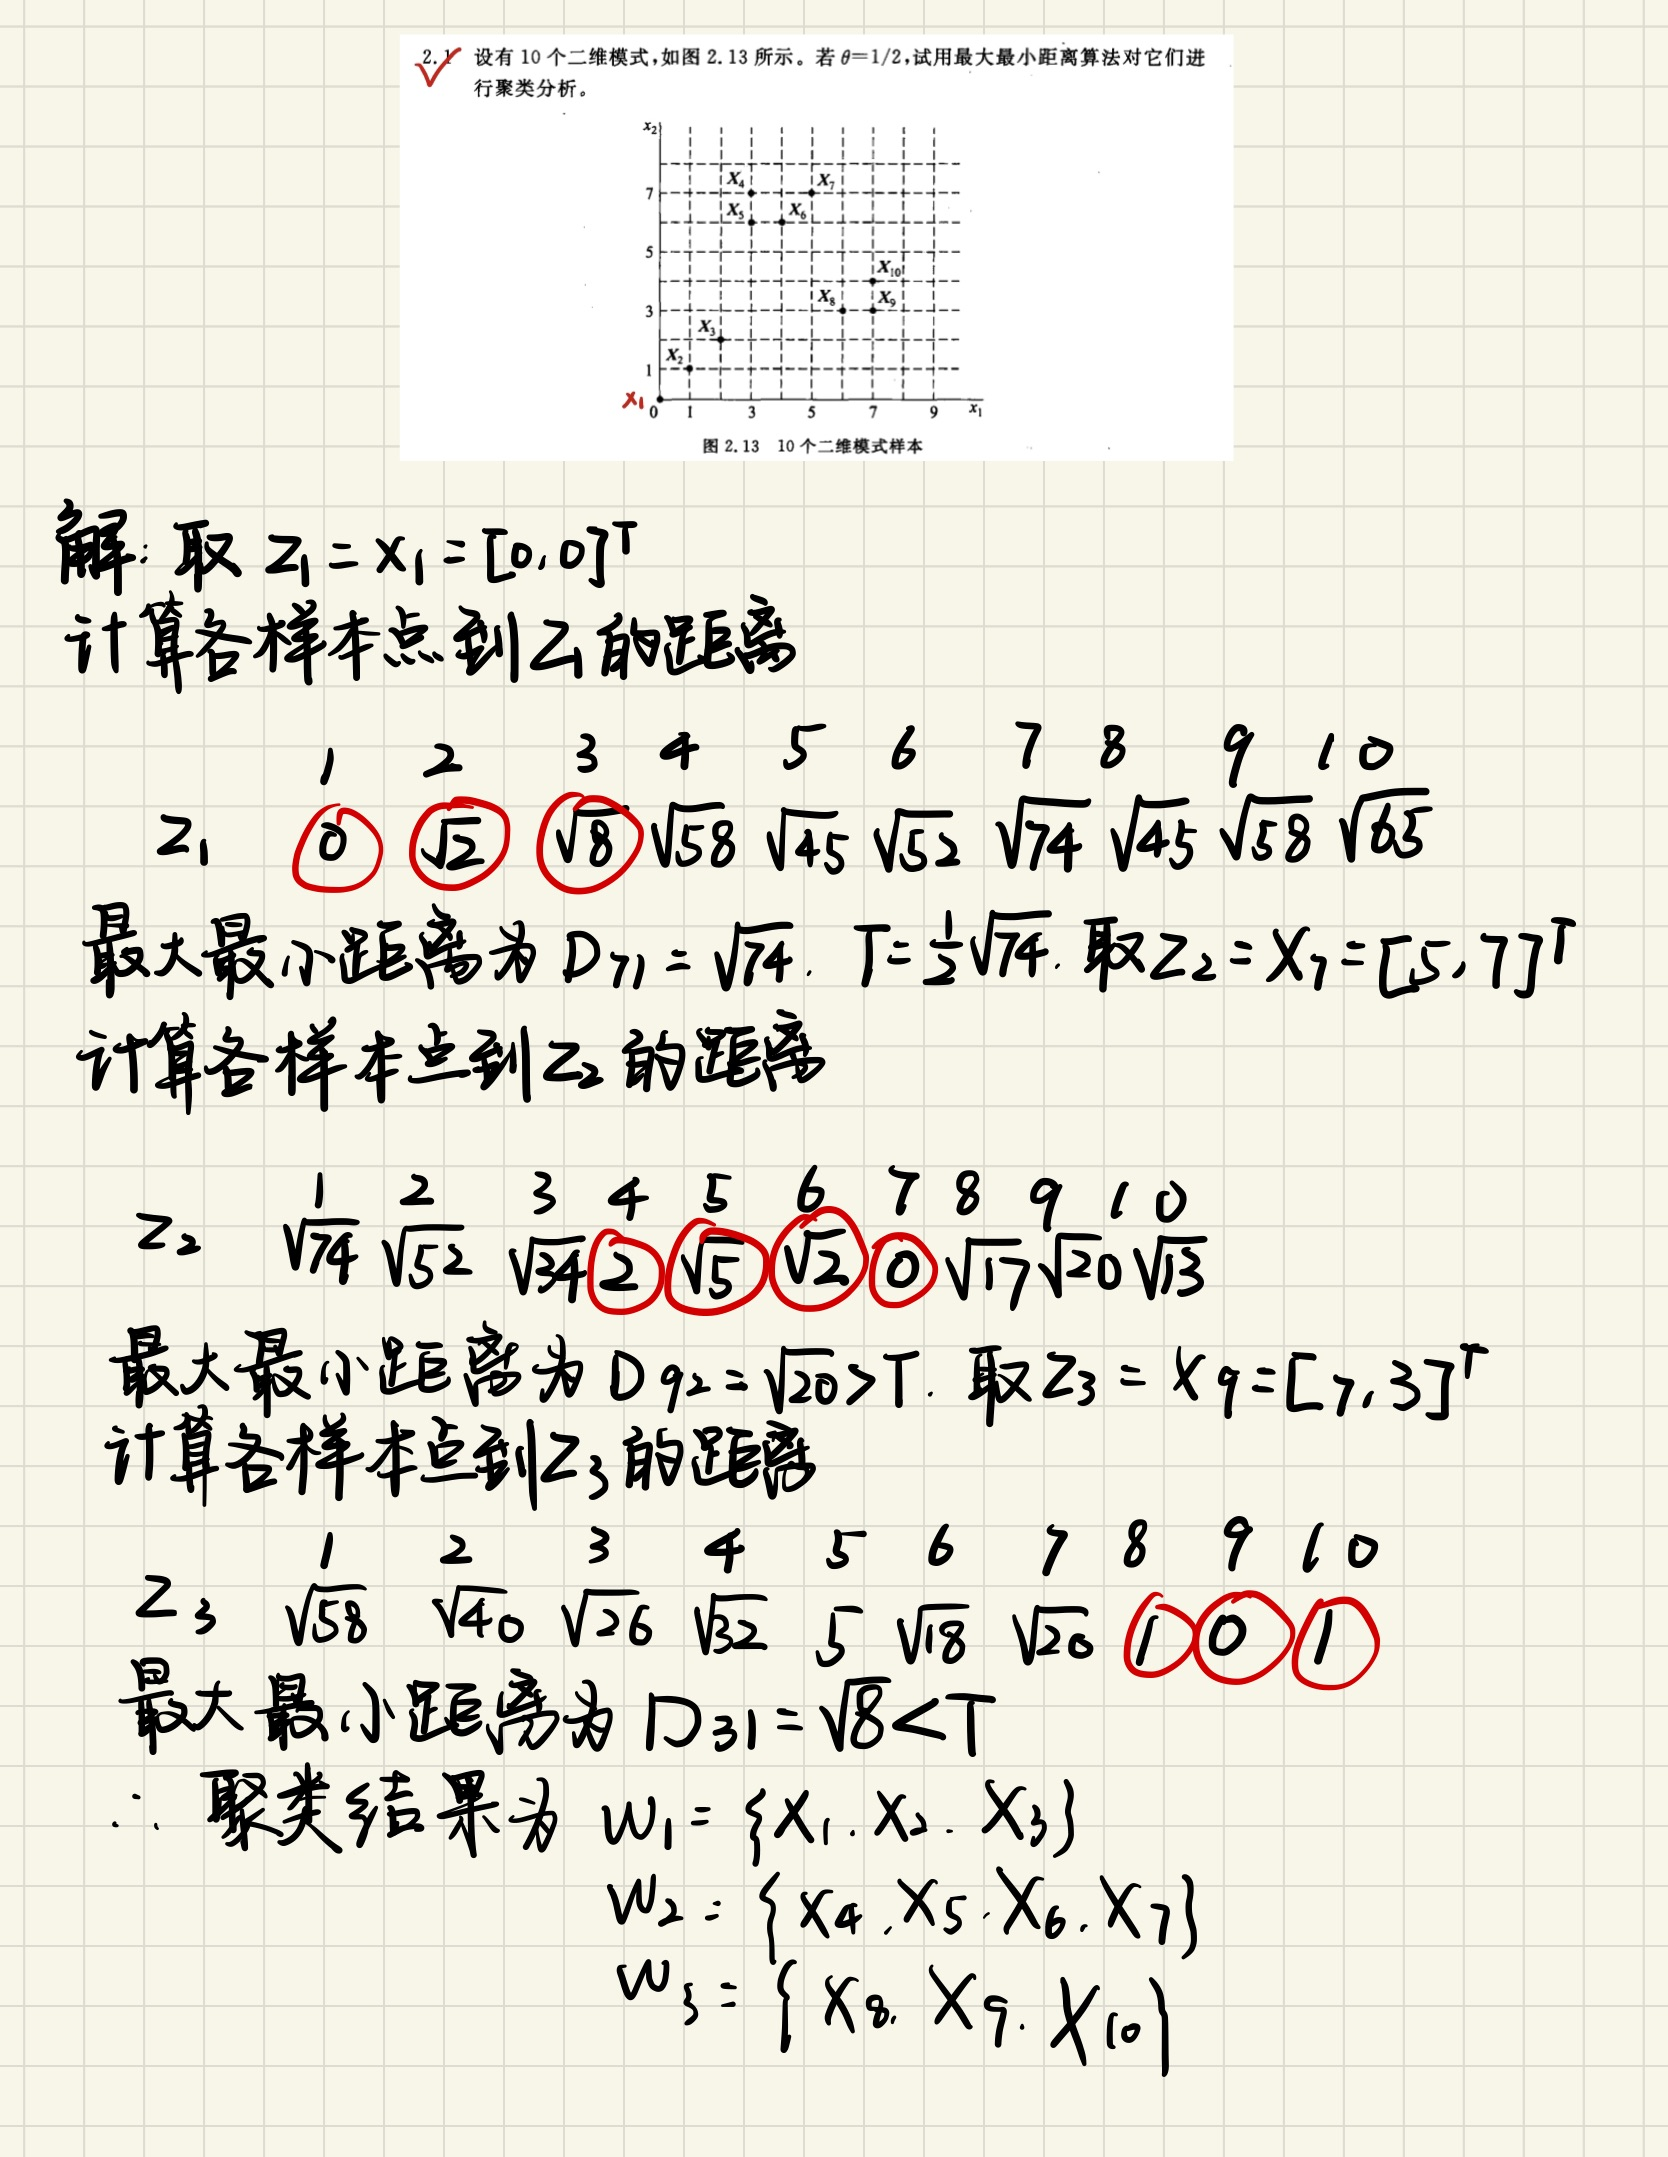 2.1 设有 10 个二维模式,如图 2.13 所示。若 θ=1/2,试用最大最小距离算法对它们进
行聚类分析。
x₂
X₄ X₇
7
X₅ X₆
5
X₁₀
X₈ X₉
3
X₃
X₂
1
X₁ 0 1 3 5 7 9 x₁
图 2.13 10 个二维模式样本
解: 取 Z₁ = X₁ = [0,0]ᵀ
计算各样本点到Z₁的距离
1 2 3 4 5 6 7 8 9 10
Z₁ 0 √2 √8 √58 √45 √52 √74 √45 √58 √65
最大最小距离为 D₇₁ = √74. T = ½√74. 取Z₂ = X₇ = [5,7]ᵀ
计算各样本点到Z₂的距离
1 2 3 4 5 6 7 8 9 10
Z₂ √74 √52 √34 2 √5 √2 0 √17 √20 √13
最大最小距离为 D₉₂ = √20 > T. 取Z₃ = X₉ = [7,3]ᵀ
计算各样本点到Z₃的距离
1 2 3 4 5 6 7 8 9 10
Z₃ √58 √40 √26 √32 5 √18 √20 1 0 1
最大最小距离为 D₃₁ = √8 < T
∴ 聚类结果为 W₁ = {X₁. X₂. X₃}
W₂ = {X₄. X₅. X₆. X₇}
W₃ = {X₈. X₉. X₁₀}